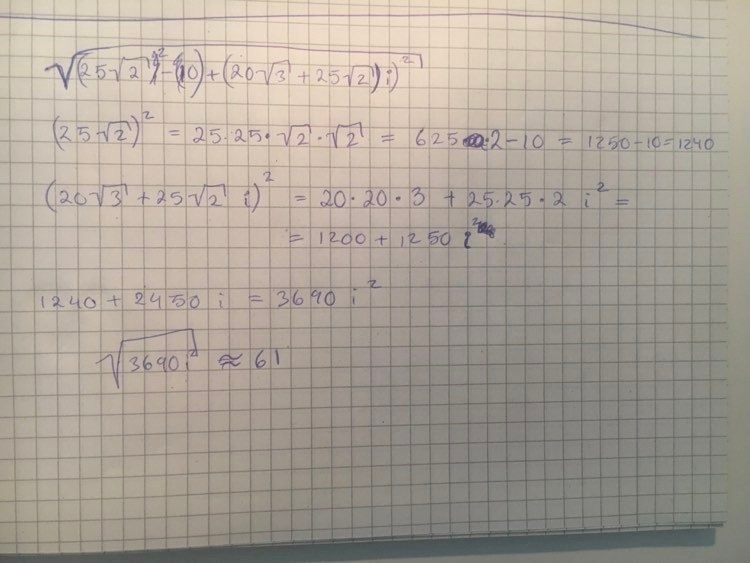 √((25√2)² - (10) + (20√3 + 25√2) i)²
(25√2)² = 25·25·√2·√2 = 625·2-10 = 1250-10=1240
(20√3 + 25√2 i)² = 20·20·3 + 25·25·2 i² =
= 1200 + 1250 i²
1240 + 2450 i = 3690 i²
√3690i² ≈ 61